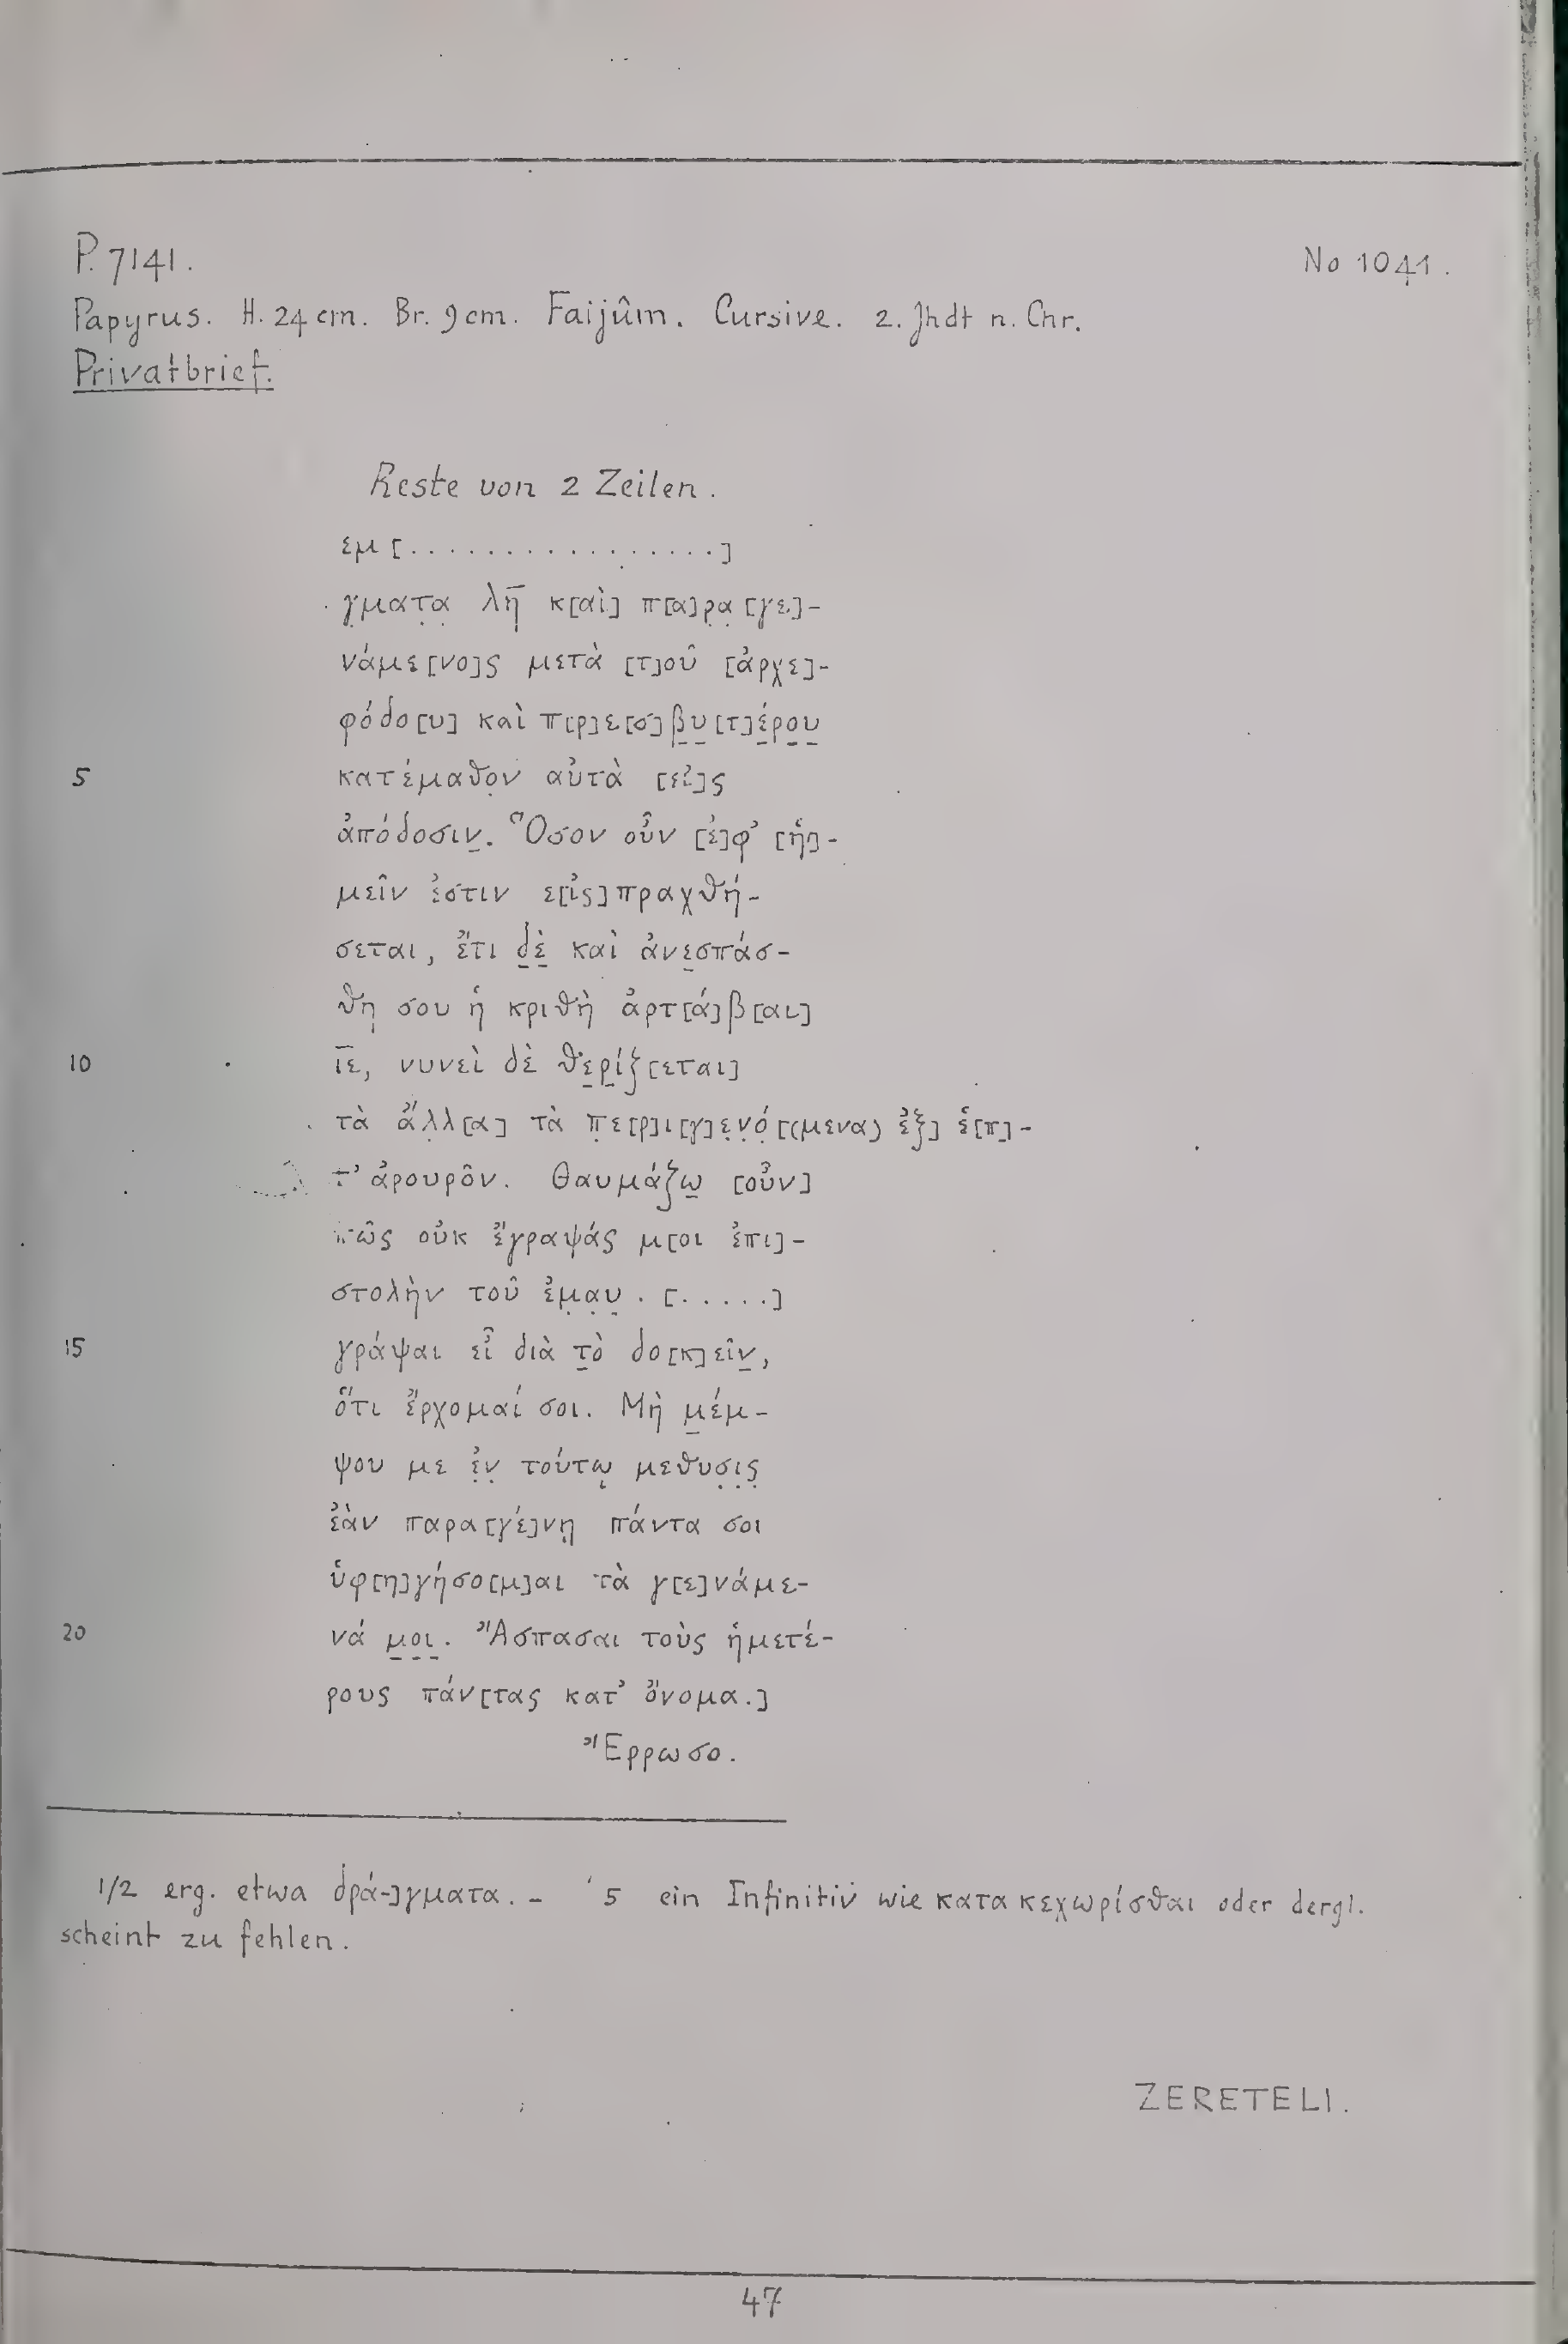 P. 7141.
No 1041.
Papyrus. H. 24 cm. Br. 9 cm. Faijûm. Cursive. 2. Jhdt n. Chr.
Privatbrief.
Reste von 2 Zeilen.
εμ[................]
γ̣ματ̣α̣ λη̅ κ[αὶ] π[α]ρ̣α̣[γε]-
νάμε[νο]ς μετὰ [τ]οῦ [ἀρχε]-
φόδο[υ] καὶ π[ρ]ε[σ]βυ[τ]έρου
5 κατέμαθο̣ν αὐτὰ [εἰ]ς
ἀπόδοσιν. Ὅσον οὖν [ἐ]φ' [ἡ]-
μεῖν ἐστιν ε[ἰς]πραχθή-
σεται, ἔτι δὲ καὶ ἀνεσπάσ-
θη σου ἡ κριθὴ ἀρτ[ά]β[αι]
10 ι̅ε̅, νυνεὶ δὲ θερίζ[εται]
τὰ ἄλ̣λ[α] τὰ π̣ε[ρ]ι[γ]ε̣ν̣ό̣[(μενα) ἐξ] ἑ[π]-
τ' ἀρουρῶν. Θαυμάζω [οὖν]
πῶς οὐκ ἔγραψάς μ[οι ἐπι]-
στολὴν τοῦ ἐμ̣α̣υ̣ . [.....]
15 γράψαι εἶ διὰ τὸ δο[κ]εῖν,
ὅτι ἔρχομαί σοι. Μὴ μέμ-
ψου με ἐ̣ν̣ τούτῳ μεθυσ̣ι̣ς̣
ἐὰν παρα[γέ]νῃ πάντα σοι
ὑφ[η]γήσο[μ]αι τὰ γ[ε]νάμε-
20 νά μοι. Ἄσπασαι τοὺς ἡμετέ-
ρους πάν[τας κατ' ὄνομα.]
Ἔρρωσο.
1/2 erg. etwa δρά-]γματα. – 5 ein Infinitiv wie κατακεχωρίσθαι oder dergl.
scheint zu fehlen.
ZERETELI.
47